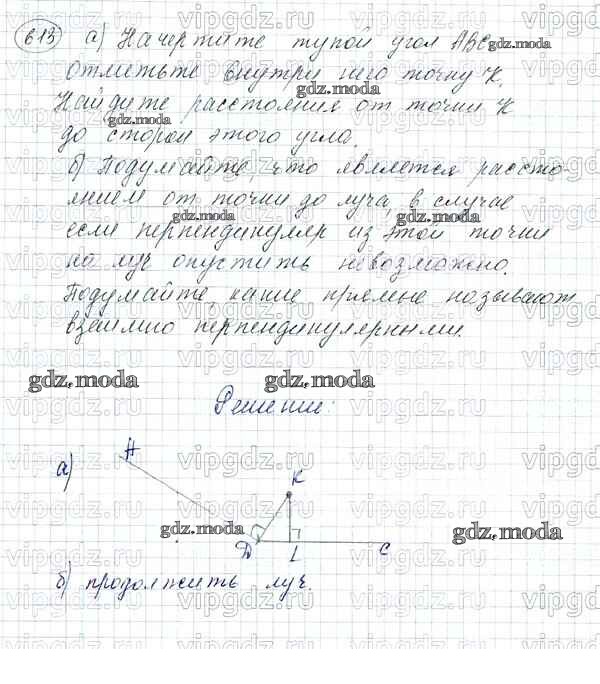 613 а) Начертите тупой угол ABC
отметьте внутри него точку K.
Найдите расстояния от точки K
до сторон этого угла.
б) Подумайте, что является расстоя-
нием от точки до луча, в случае
если перпендикуляр из этой точки
на луч опустить невозможно.
Подумайте, какие прямые называют
взаимно перпендикулярными.
gdz.moda
gdz.moda
Решение:
а)
A
K
Д
L
C
б) продолжить луч.